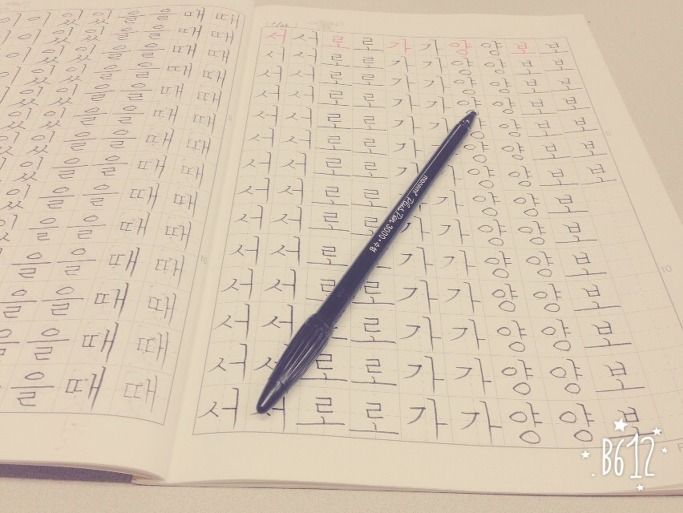 이 있 있 을 을 때 때
이 있 있 을 을 때 때
이 있 있 을 을 때 때
이 있 있 을 을 때 때
있 있 을 을 때 때
있 있 을 을 때 때
있 있 을 을 때 때
있 을 을 때 때
있 을 을 때 때
을 을 때 때
을 을 때 때
을 을 때 때
을 을 때 때
을 때 때
서 서 로 로 가 가 양 양 보 보
서 서 로 로 가 가 양 양 보 보
서 서 로 로 가 가 양 양 보 보
서 서 로 로 가 가 양 양 보 보
서 서 로 로 가 가 양 양 보 보
서 서 로 로 가 양 양 보 보
서 서 로 로 가 양 양 보 보
서 서 로 로 가 양 양 보
서 서 로 로 가 양 양 보
서 서 로 가 가 양 양 보
서 서 로 가 가 양 양 보
서 로 가 가 양 양 보
서 로 가 가 양 양 보
서 서 로 로 가 가 양 양 보
monami Plus Pen 3000 · 수성
10
B612